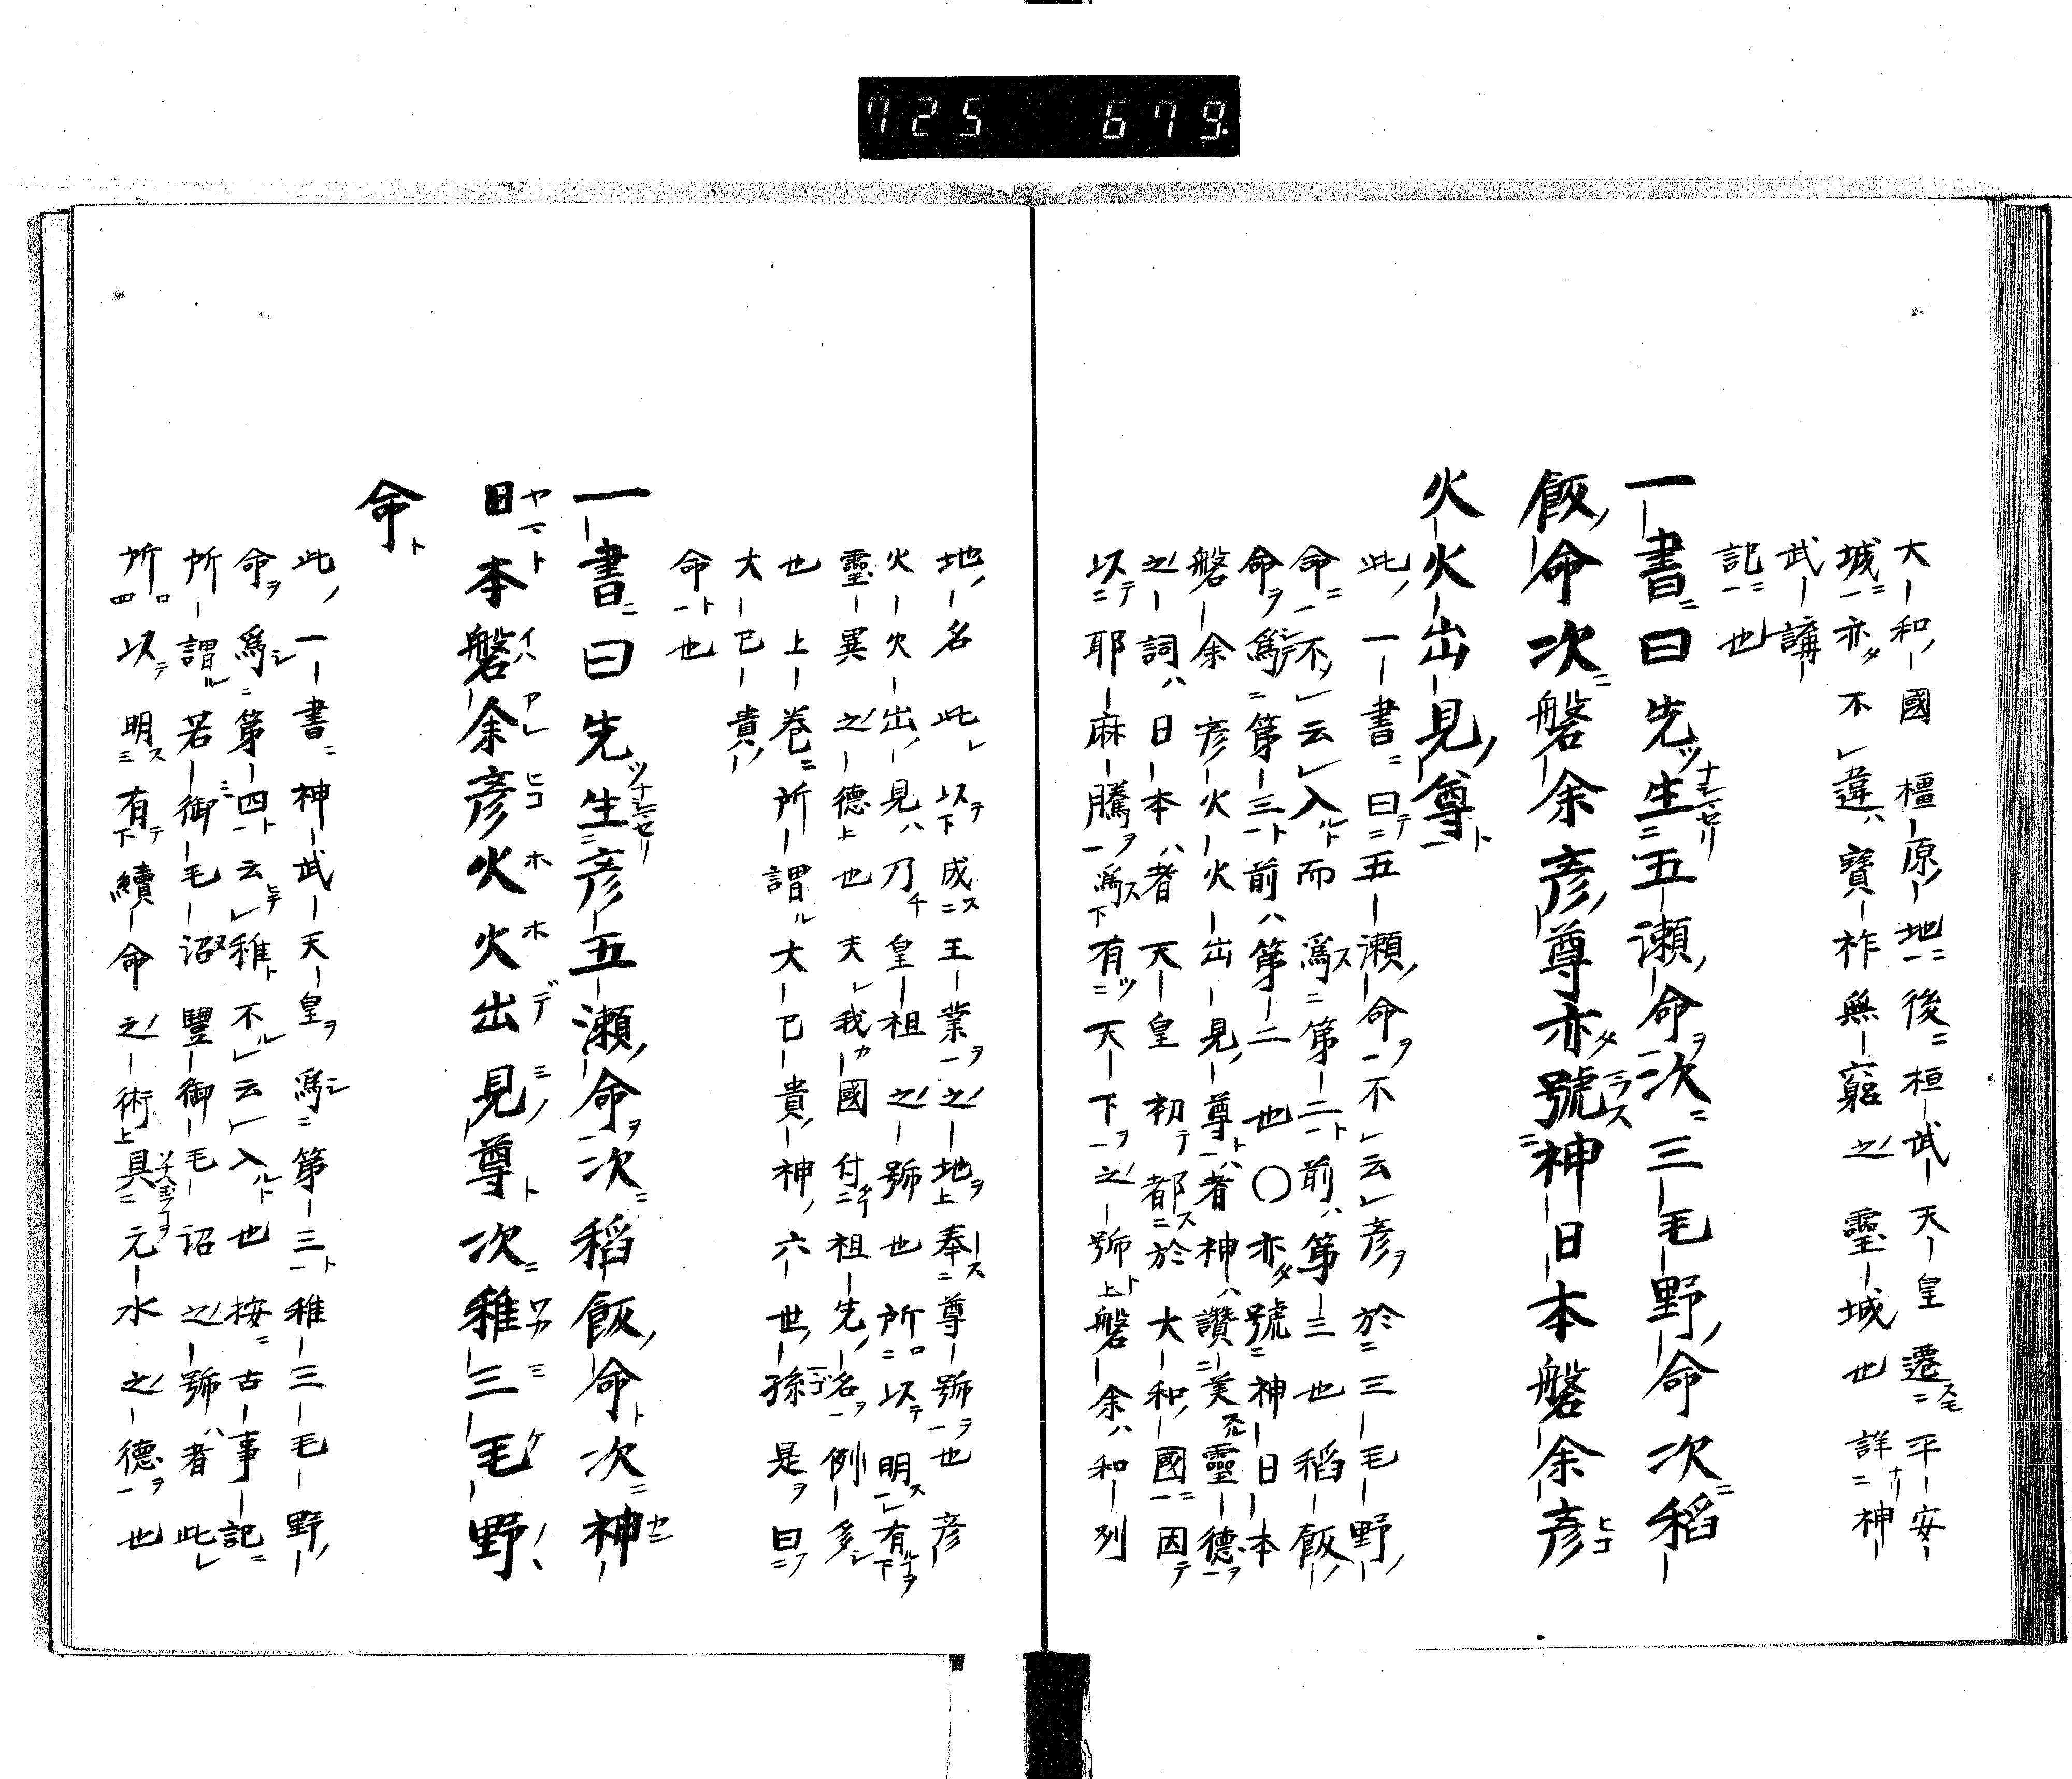 725 679
大和國橿原地後桓武天皇遷平安
城亦不違寶祚無窮之靈城也詳神
武講
記也
一書曰先生五瀬命次三毛野命次稻
飯命次磐余彦尊亦號神日本磐余彦
火火出見尊
此一書曰五瀬命不云彦於三毛野
命不云入而爲第二前第三也稻飯
命爲第三前第二也〇亦號神日本
磐余彦火火出見尊者神讚美靈德
之詞日本者天皇初都於大和國因
以耶麻騰爲有天下之號磐余和列
地名此以成王業之地奉尊號也彦
火火出見乃皇祖之號也所以明有
靈異之德也夫我國付祖先名例多
也上卷所謂大已貴神六世孫是曰
大已貴
命也
一書曰先生彦五瀬命次稻飯命次神
日本磐余彦火火出見尊次稚三毛野
命
此一書神武天皇爲第三稚三毛野
命爲第四云稚不云入也按古事記
所謂若御毛沼豐御毛沼之號者此
所以明有續命之術具元水之德也